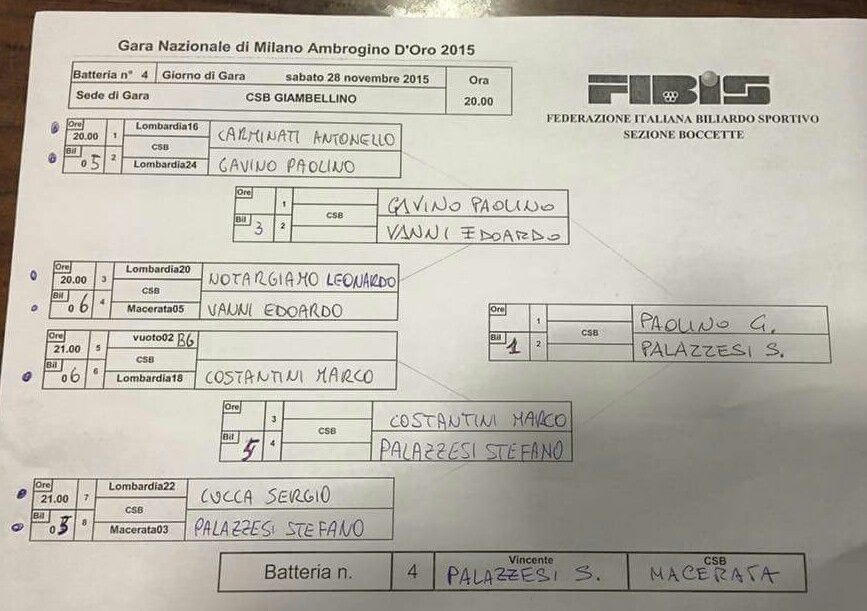 Gara Nazionale di Milano Ambrogino D'Oro 2015
Batteria n° 4 Giorno di Gara sabato 28 novembre 2015 Ora
Sede di Gara CSB GIAMBELLINO 20.00
FIBIS
FEDERAZIONE ITALIANA BILIARDO SPORTIVO
SEZIONE BOCCETTE
Ore 20.00 1 Lombardia16 CARMINATI ANTONELLO
CSB
Bil 05 2 Lombardia24 GAVINO PAOLINO
Ore 1 GAVINO PAOLINO
CSB
Bil 3 2 VANNI EDOARDO
Ore 20.00 3 Lombardia20 NOTARGIAMO LEONARDO
CSB
Bil 06 4 Macerata05 VANNI EDOARDO
Ore 1 PAOLINO G.
CSB
Bil 1 2 PALAZZESI S.
Ore 21.00 5 vuoto02 B6
CSB
Bil 06 6 Lombardia18 COSTANTINI MARCO
Ore 3 COSTANTINI MARCO
CSB
Bil 5 4 PALAZZESI STEFANO
Ore 21.00 7 Lombardia22 CUCCA SERGIO
CSB
Bil 03 8 Macerata03 PALAZZESI STEFANO
Batteria n. 4 Vincente PALAZZESI S. CSB MACERATA